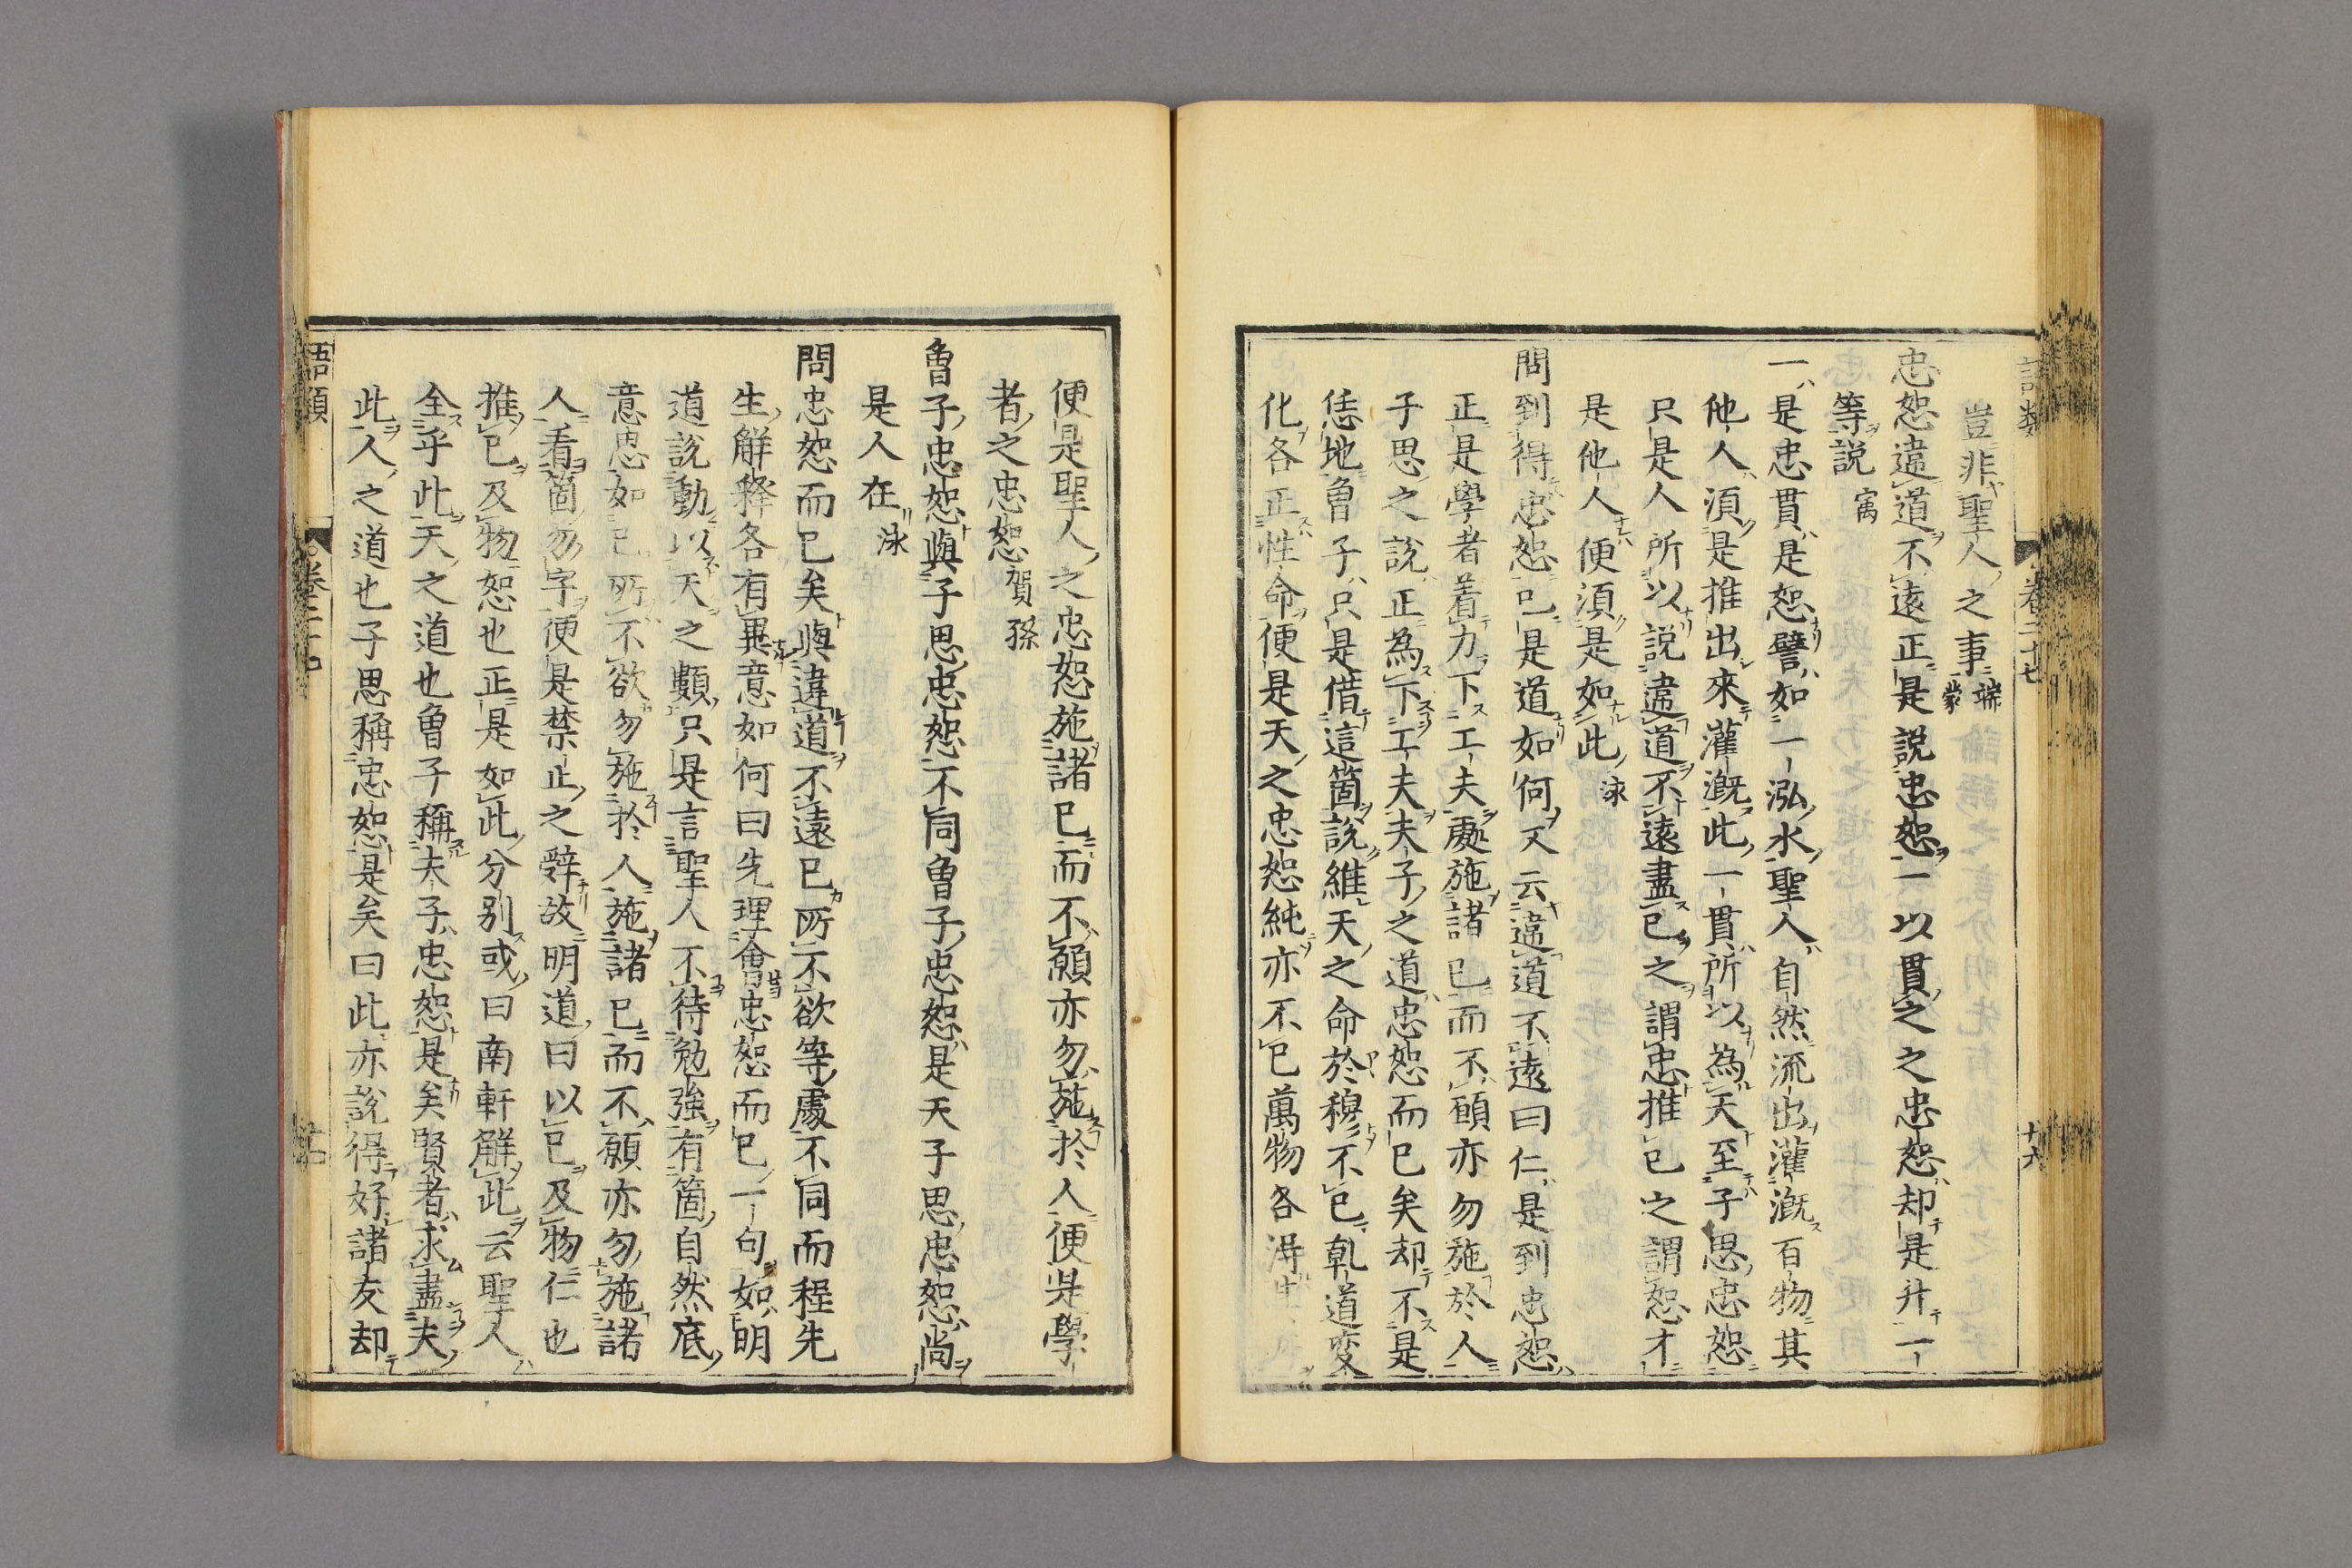 語類 卷二十七 十六
豈非聖人之事端蒙
忠恕違道不遠正是説忠恕一以貫之之忠恕却是升一
等説㝢
一是忠貫是恕譬如一泓水聖人自然流出灌漑百物其
他人須是推出來灌漑此一貫所以為天至子思忠恕
只是人所以説違道不遠盡己之謂忠推己之謂恕才
是他人便須是如此泳
問到得忠恕已是道如何又云違道不遠曰仁是到忠恕
正是學者着力下工夫處施諸已而不願亦勿施於人
子思之說正為下工夫夫子之道忠恕而已矣却不是
恁地曽子只是借這箇說維天之命於穆不已乹道变
化各正性命便是天之忠恕純亦不已萬物各得
便是聖人之忠恕施諸已而不願亦勿施於人便是學
者之忠恕賀孫
曽子忠恕與子思忠恕不同曽子忠恕是天子思忠恕尚
是人在泳
問忠恕而已矣與違道不遠已所不欲等處不同而程先
生觧釋各有異意如何曰先理會忠恕而已一句如明
道說動以天之類只是言聖人不待勉強有箇自然底
意思如已所不欲勿施於人施諸已而不願亦勿施諸
人看箇勿字便是禁止之辭故明道曰以已及物仁也
推已及物恕也正是如此分别或曰南軒觧此云聖人
全乎此天之道也曽子稱夫子忠恕是矣賢者求盡夫
此人之道也子思稱忠恕是矣曰此亦說得好諸友却
語類